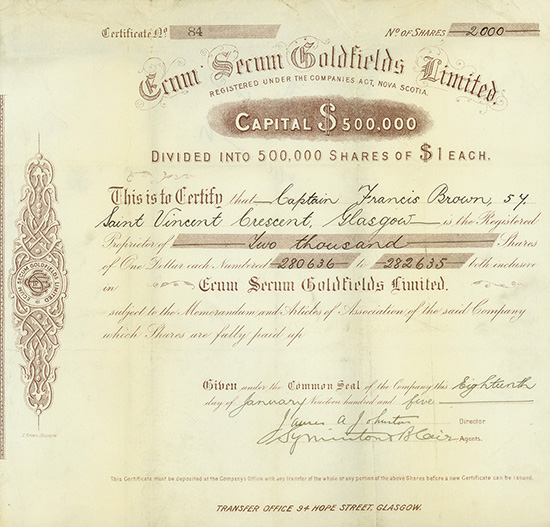 Certificate No 84 No of Shares 2000
Ecum Secum Goldfields Limited.
REGISTERED UNDER THE COMPANIES ACT, NOVA SCOTIA.
CAPITAL $500,000
DIVIDED INTO 500,000 SHARES OF $1 EACH.
This is to Certify that Captain Francis Brown, 54
Saint Vincent Crescent, Glasgow is the Registered
Proprietor of Two thousand Shares
of One Dollar each Numbered 280636 to 282635 both inclusive
in Ecum Secum Goldfields Limited.
subject to the Memorandum and Articles of Association of the said Company
which Shares are fully paid up
ECUM SECUM GOLDFIELDS LIMITED
Given under the Common Seal of the Company this Eighteenth
day of January Nineteen hundred and five
James A Johnston Director
Symington & Blair Agents.
This Certificate must be deposited at the Company's Office with any transfer of the whole or any portion of the above Shares before a new Certificate can be issued.
TRANSFER OFFICE 94 HOPE STREET, GLASGOW.